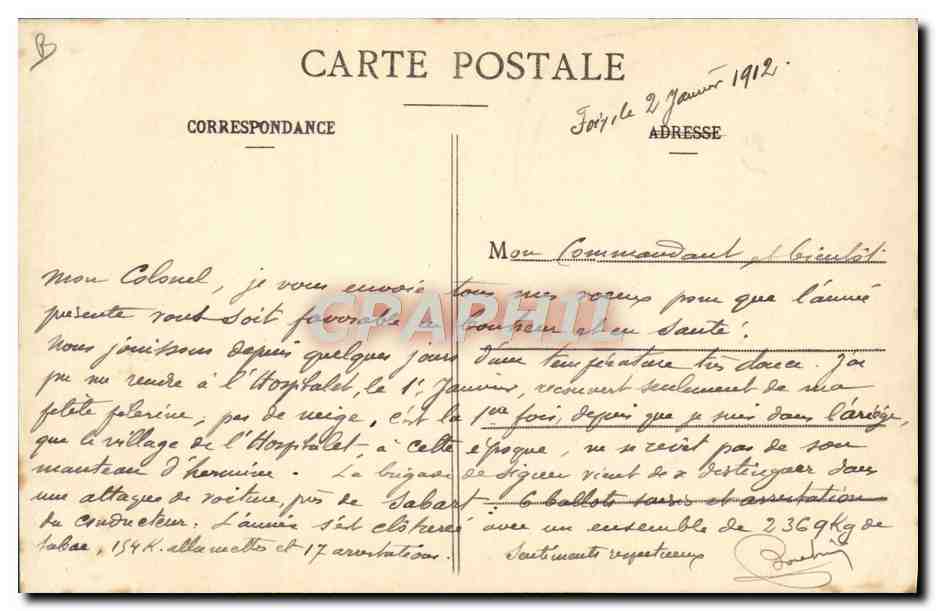 B
CARTE POSTALE
Foix, le 2 Janvier 1912.
CORRESPONDANCE
ADRESSE
Mon Commandant et bientôt
Mon Colonel, je vous envoie tous mes voeux pour que l'année
présente vous soit favorable en bonheur et en santé!
Nous jouissons depuis quelques jours d'une température très douce. J'ai
pu me rendre à l'Hospitalet, le 1er Janvier, recouvert seulement de ma
petite pèlerine, pas de neige, c'est la 1ère fois, depuis que je suis dans l'ariège,
que le village de l'Hospitalet, à cette époque, ne se revêt pas de son
manteau d'hermine. La brigade de Siguer vient de se distinguer dans
une attaque de voiture, près de Sabart : 6 ballots saisis et arrestation
du conducteur. L'année s'est clôturée avec un ensemble de 2369 Kg de
tabac, 154 K. allumettes et 17 arrestations.
Sentiments respectueux
CPAPHIL